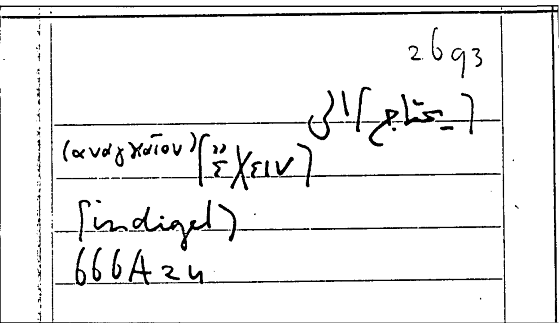 2693
[يحتاج] الى
(αναγκαῖον) [ἔχειν]
[indiget]
666A24